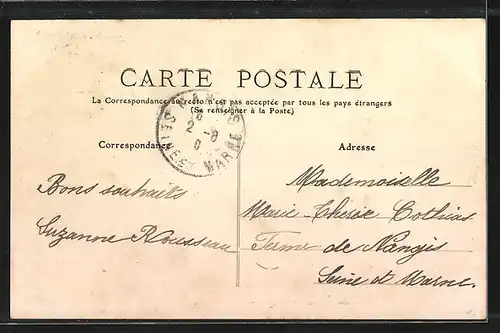 CARTE POSTALE
La Correspondance au recto n'est pas acceptée par tous les pays étrangers
(Se renseigner à la Poste)
Correspondance
Adresse
SEINE ET MARNE
2 - 8
Bons souhaits
Suzanne Rousseau
Mademoiselle
Marie-Thérèse Cothias
Ferme de Nangis
Seine et Marne.